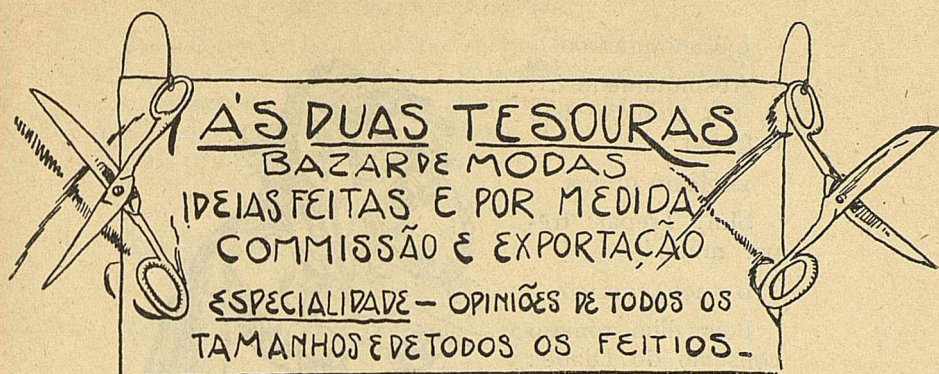 Á'S DUAS TESOURAS
BAZAR DE MODAS
IDEIAS FEITAS E POR MEDIDA
COMMISSÃO E EXPORTAÇÃO
ESPECIALIDADE — OPINIÕES DE TODOS OS
TAMANHOS E DE TODOS OS FEITIOS_